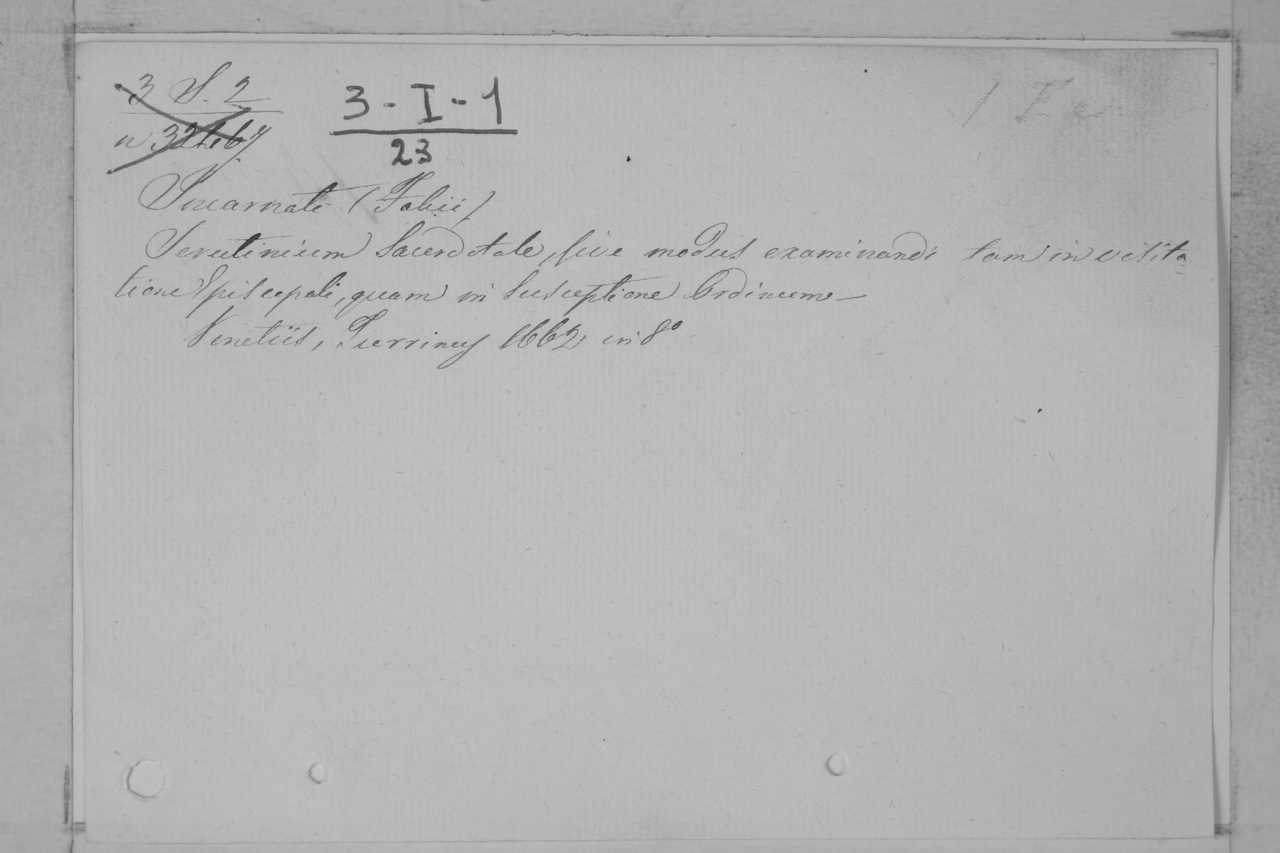 3 S. 2
3-I-1
23
Incarnati (Fabii)
Scrutinium Sacerdotale, sive modus examinandi tam in visita=
tione Episcopali, quam in Susceptione Ordinum—
Venetiis, 1662 in 8º